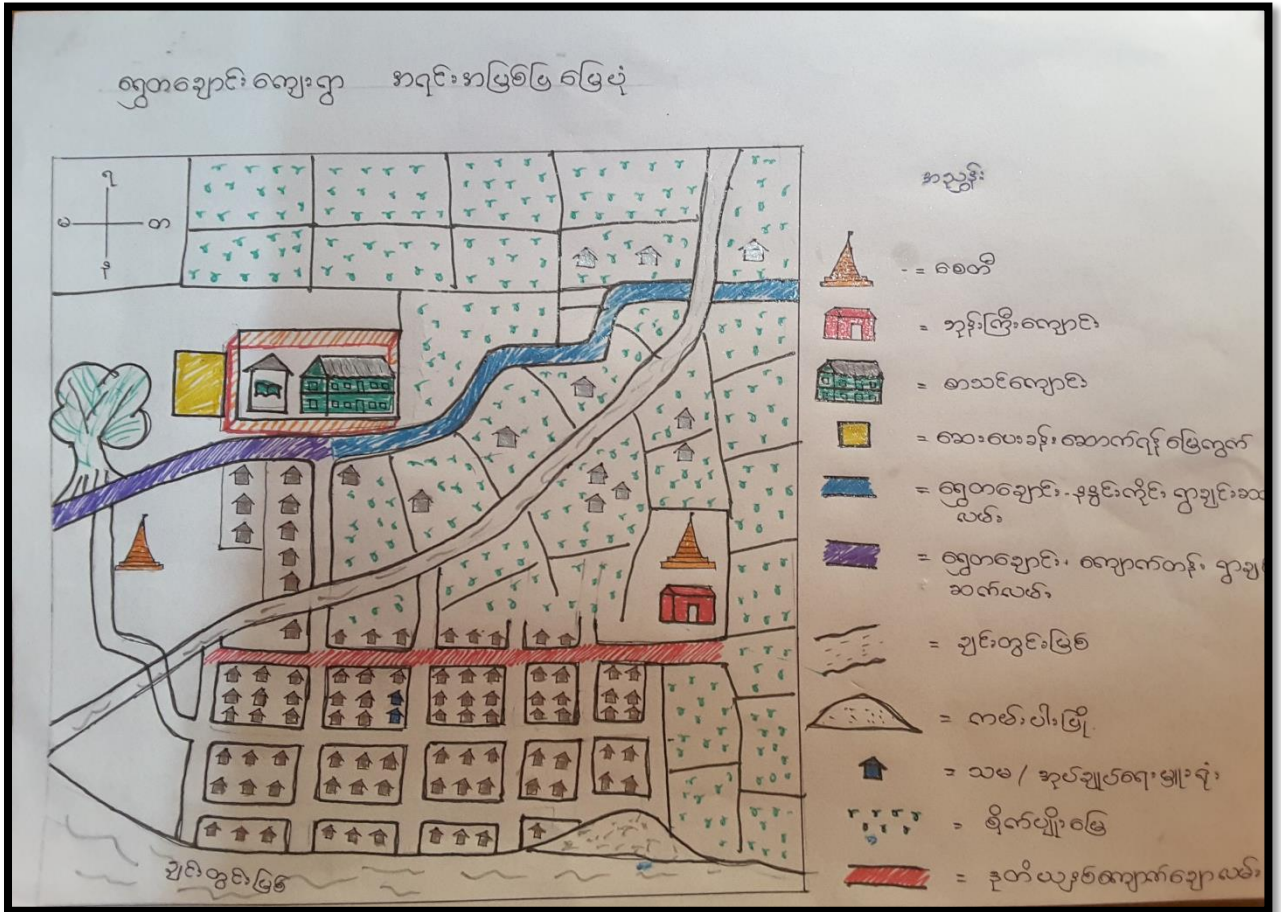 ရွှေတချောင်းကျေးရွာ အရင်းအမြစ်ပြ မြေပုံ
ရ
မ တ
န
အညွှန်း
- = စေတီ
= ဘုန်းကြီးကျောင်း
= စာသင်ကျောင်း
= ဆေးပေးခန်းဆောက်ရန် မြေကွက်
= ရွှေတချောင်း-နနွင်းကိုင်း ရွာချင်းဆ
လမ်း
= ရွှေတချောင်း၊ ကျောက်တန်း ရွာချ
ဆက်လမ်း
= ချင်းတွင်းမြစ်
= ကမ်းပါးပြို
= သမ / အုပ်ချုပ်ရေးမှူးရုံး
= စိုက်ပျိုးမြေ
= ဒုတိယ ကျောက်ချောလမ်း
ချင်းတွင်းမြစ်